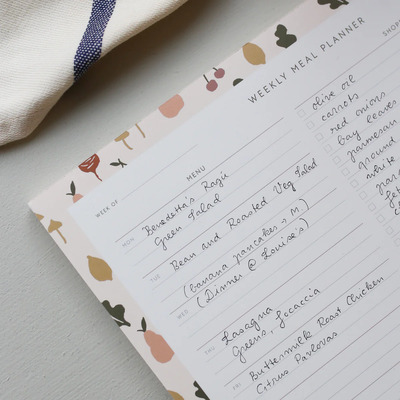 WEEKLY MEAL PLANNER
WEEK OF
MENU
MON
Benedetta's Ragú
Green Salad
TUE
Bean and Roasted Veg Salad
(banana pancakes → M)
WED
(Dinner @ Louise's)
THU
Lasagna
Greens, Focaccia
FRI
Buttermilk Roast Chicken
Citrus Pavlovas
SHOP
olive oil
carrots
red onions
bay leaves
parmesan
ground
white